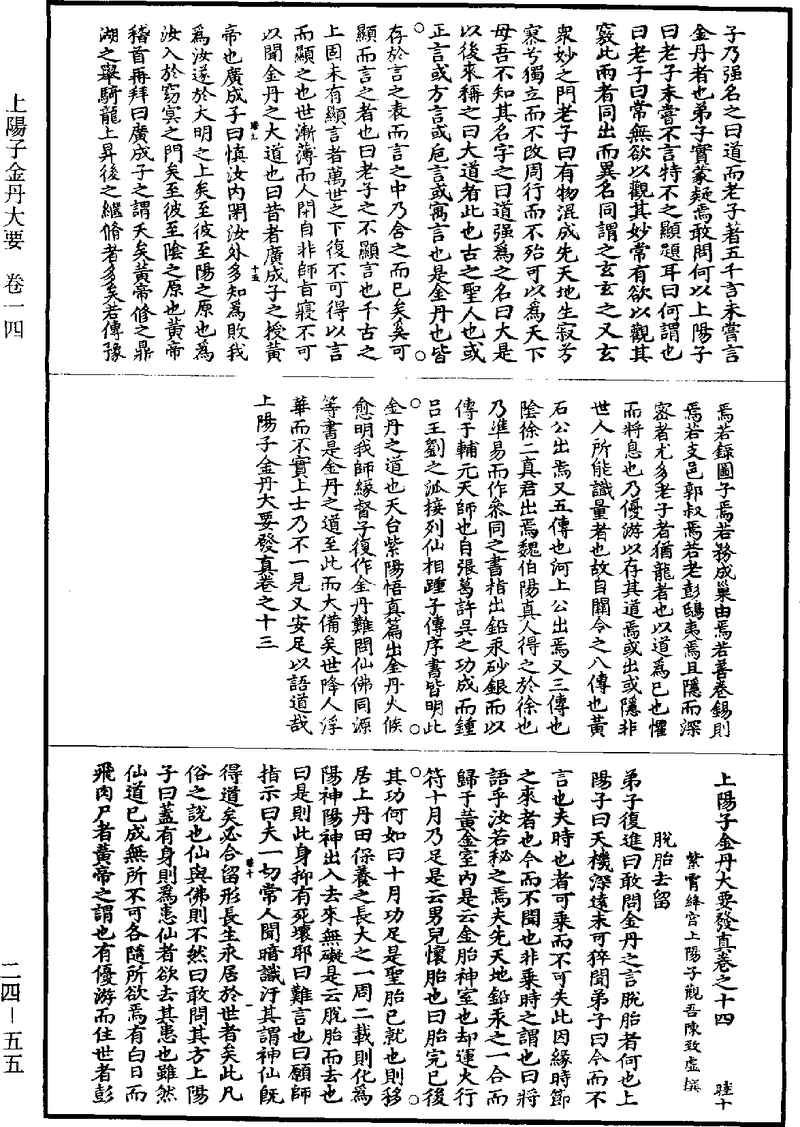 上陽子金丹大要　卷一四
二四－五五
子乃强名之曰道而老子著五千言未嘗言
金丹者也弟子實蒙疑焉敢問何以上陽子
曰老子未嘗不言特不之顯題耳曰何謂也
曰老子曰常無欲以觀其妙常有欲以觀其
竅此兩者同出而異名同謂之玄玄之又玄
衆妙之門老子曰有物混成先天地生寂兮
寥兮獨立而不改周行而不殆可以爲天下
母吾不知其名字之曰道强爲之名曰大是
以後來稱之曰大道者此也古之聖人也或
正言或方言或卮言或寓言也是金丹也皆
存於言之表而言之中乃含之而已矣奚可
顯而言之者也曰老子之不顯言也千古之
上固未有顯言者萬世之下復不可得以言
而顯之也世漸薄而人閑自非師旨寢不可
以聞金丹之大道也曰昔者廣成子之授黄
帝也廣成子曰慎汝内閑汝外多知爲敗我
爲汝遂於大明之上矣至彼至陽之原也爲
汝入於窈冥之門矣至彼至陰之原也黄帝
稽首再拜曰廣成子之謂天矣黄帝修之鼎
湖之舉騎龍上昇後之繼脩者多矣若傳豫
焉若錄圖子焉若務成巢由焉若善卷錫則
焉若支邑郭叔焉若老彭鴟夷焉且隱而深
密者尤多老子者猶龍者也以道爲已也懼
而將息也乃優游以存其道焉或出或隱非
世人所能識量者也故自關令之八傳也黄
石公出焉又五傳也河上公出焉又三傳也
陰徐二真君出焉魏伯陽真人得之於徐也
乃準易而作參同之書指出鉛汞砂銀而以
傳于輔元天師也自張葛許吳之功成而鍾
吕王劉之派接列仙相踵子傳序書皆明此
金丹之道也天台紫陽悟真篇出金丹火候
愈明我師緣督子復作金丹難問仙佛同源
等書是金丹之道至此而大備矣世降人浮
華而不實上士乃不一見又安足以語道哉
上陽子金丹大要發真卷之十三
上陽子金丹大要發真卷之十四　睦十
紫霄絳宫上陽子觀吾陳致虚撰
脱胎去留
弟子復進曰敢問金丹之言脱胎者何也上
陽子曰天機深遠未可猝聞弟子曰今而不
言也夫時也者可乘而不可失此因緣時節
之來者也今而不聞也非乘時之謂也曰將
語乎汝若秘之焉夫先天地鉛汞之一合而
歸于黄金室内是云金胎神室也却運火行
符十月乃足是云男兒懷胎也曰胎完已後
其功何如曰十月功足是聖胎已就也則移
居上丹田保養之長大之一周二載則化爲
陽神陽神出入去來無礙是云脱胎而去也
曰是則此身抑有死壞耶曰難言也曰願師
指示曰夫一切常人聞暗識汙其謂神仙既
得道矣必合留形長生永居於世者矣此凡
俗之說也仙與佛則不然曰敢問其方上陽
子曰蓋有身則爲患仙者欲去其患也雖然
仙道已成無所不可各隨所欲焉有白日而
飛肉尸者黄帝之謂也有優游而住世者彭